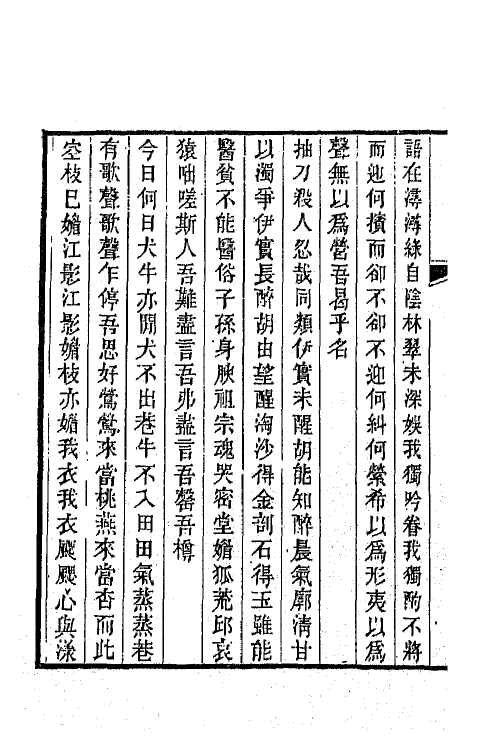 語在潯潯綠自陰林翠未深娛我獨吟眷我獨酌不將
而迎何擯而卻不卻不迎何糾何縈希以爲形夷以爲
聲無以爲營吾曷乎名
抽刀殺人忍哉同類伊實未醒胡能知醉晨氣廓淸甘
以濁爭伊實長醉胡由望醒淘沙得金剖石得玉雖能
醫貧不能醫俗子孫身腴祖宗魂哭密堂媚狐荒邱哀
猿咄嗟斯人吾難盡言吾弗盡言吾罄吾樽
今日何日犬牛亦閒犬不出巷牛不入田田氣蒸蒸巷
有歌聲歌聲乍停吾思好鶯鶯來當桃燕來當杏而此
空枝已嬗江影江影嬗枝亦嬗我衣我衣颸颸心與漾